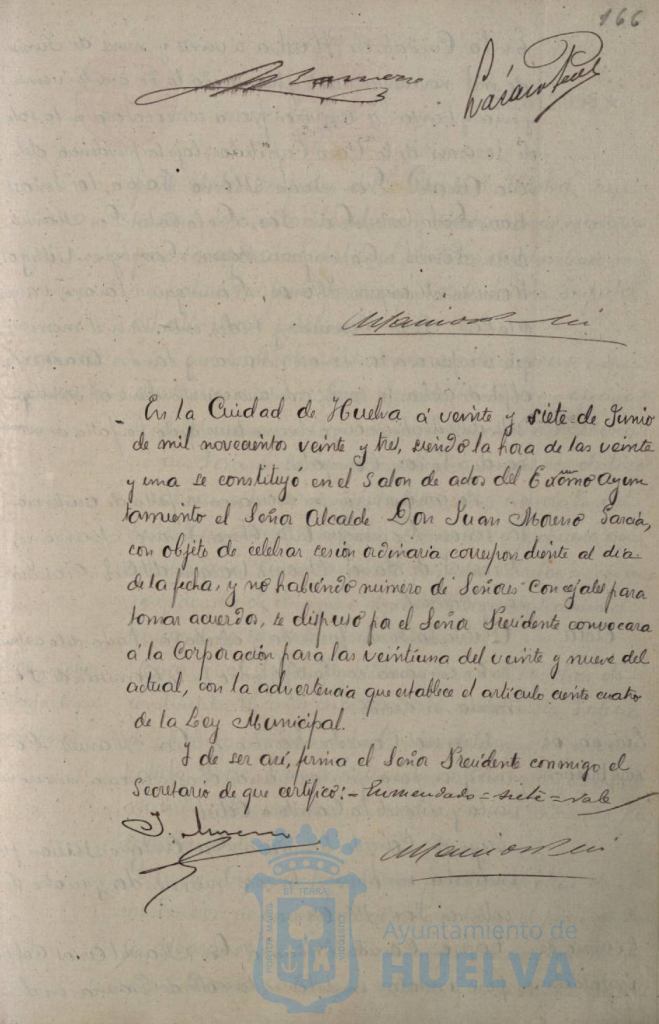 166
En la Cuidad de Huelva á veinte y siete de Junio
de mil novecientos veinte y tres, siendo la hora de las veinte
y una se constituyó en el Salon de actos del Exmo Ayun
tamiento el Señor Alcalde Don Juan Moreno Garcia,
con objeto de celebrar cesión ordinaria correspondiente al dia
de la fecha, y no habiendo número de Señores Concejales para
tomar acuerdos, se dispuso por el Señor Presidente convocara
á la Corporación para las veintiuna del veinte y nueve del
actual, con la advertencia que establece el artículo ciento cuatro
de la Ley Municipal.
Y de ser así, firma el Señor Presidente conmigo, el
Secretario de que certifico:- Enmendado = siete = vale
J. Moreno
Ayuntamiento de
HUELVA